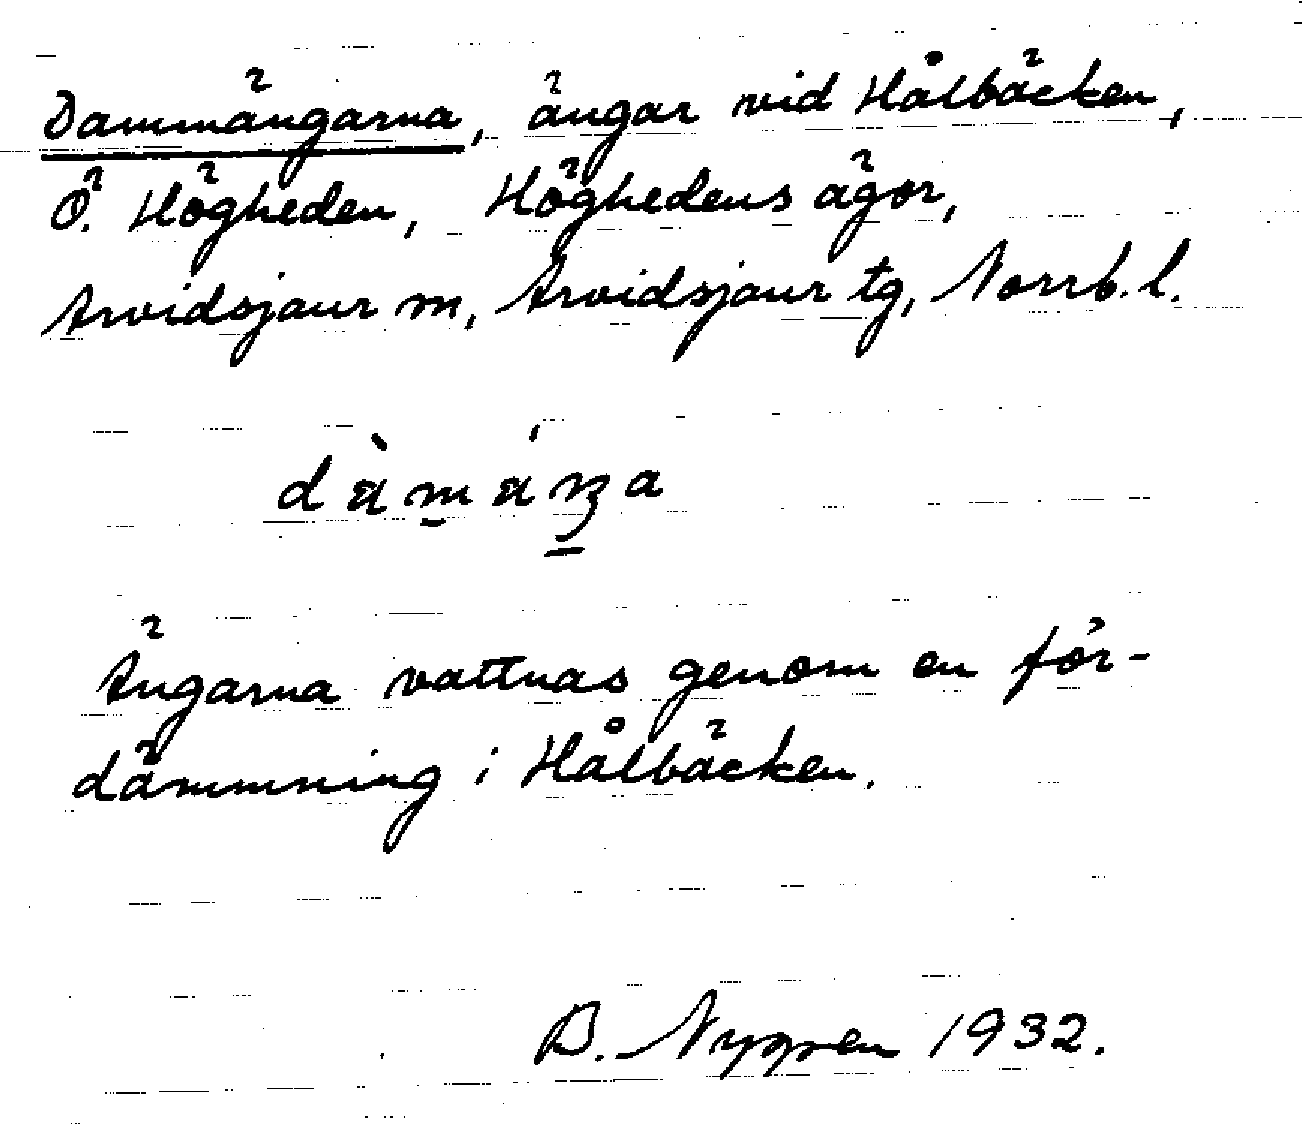 Dammängarna, ängar vid Hålbäcken,
Ö. Högheden, Höghedens ägor,
Arvidsjaur sn, Arvidsjaur tg, Norrb. l.
Ängarna vattnas genom en för-
dämmning i Hålbäcken.
B. Nygren 1932.